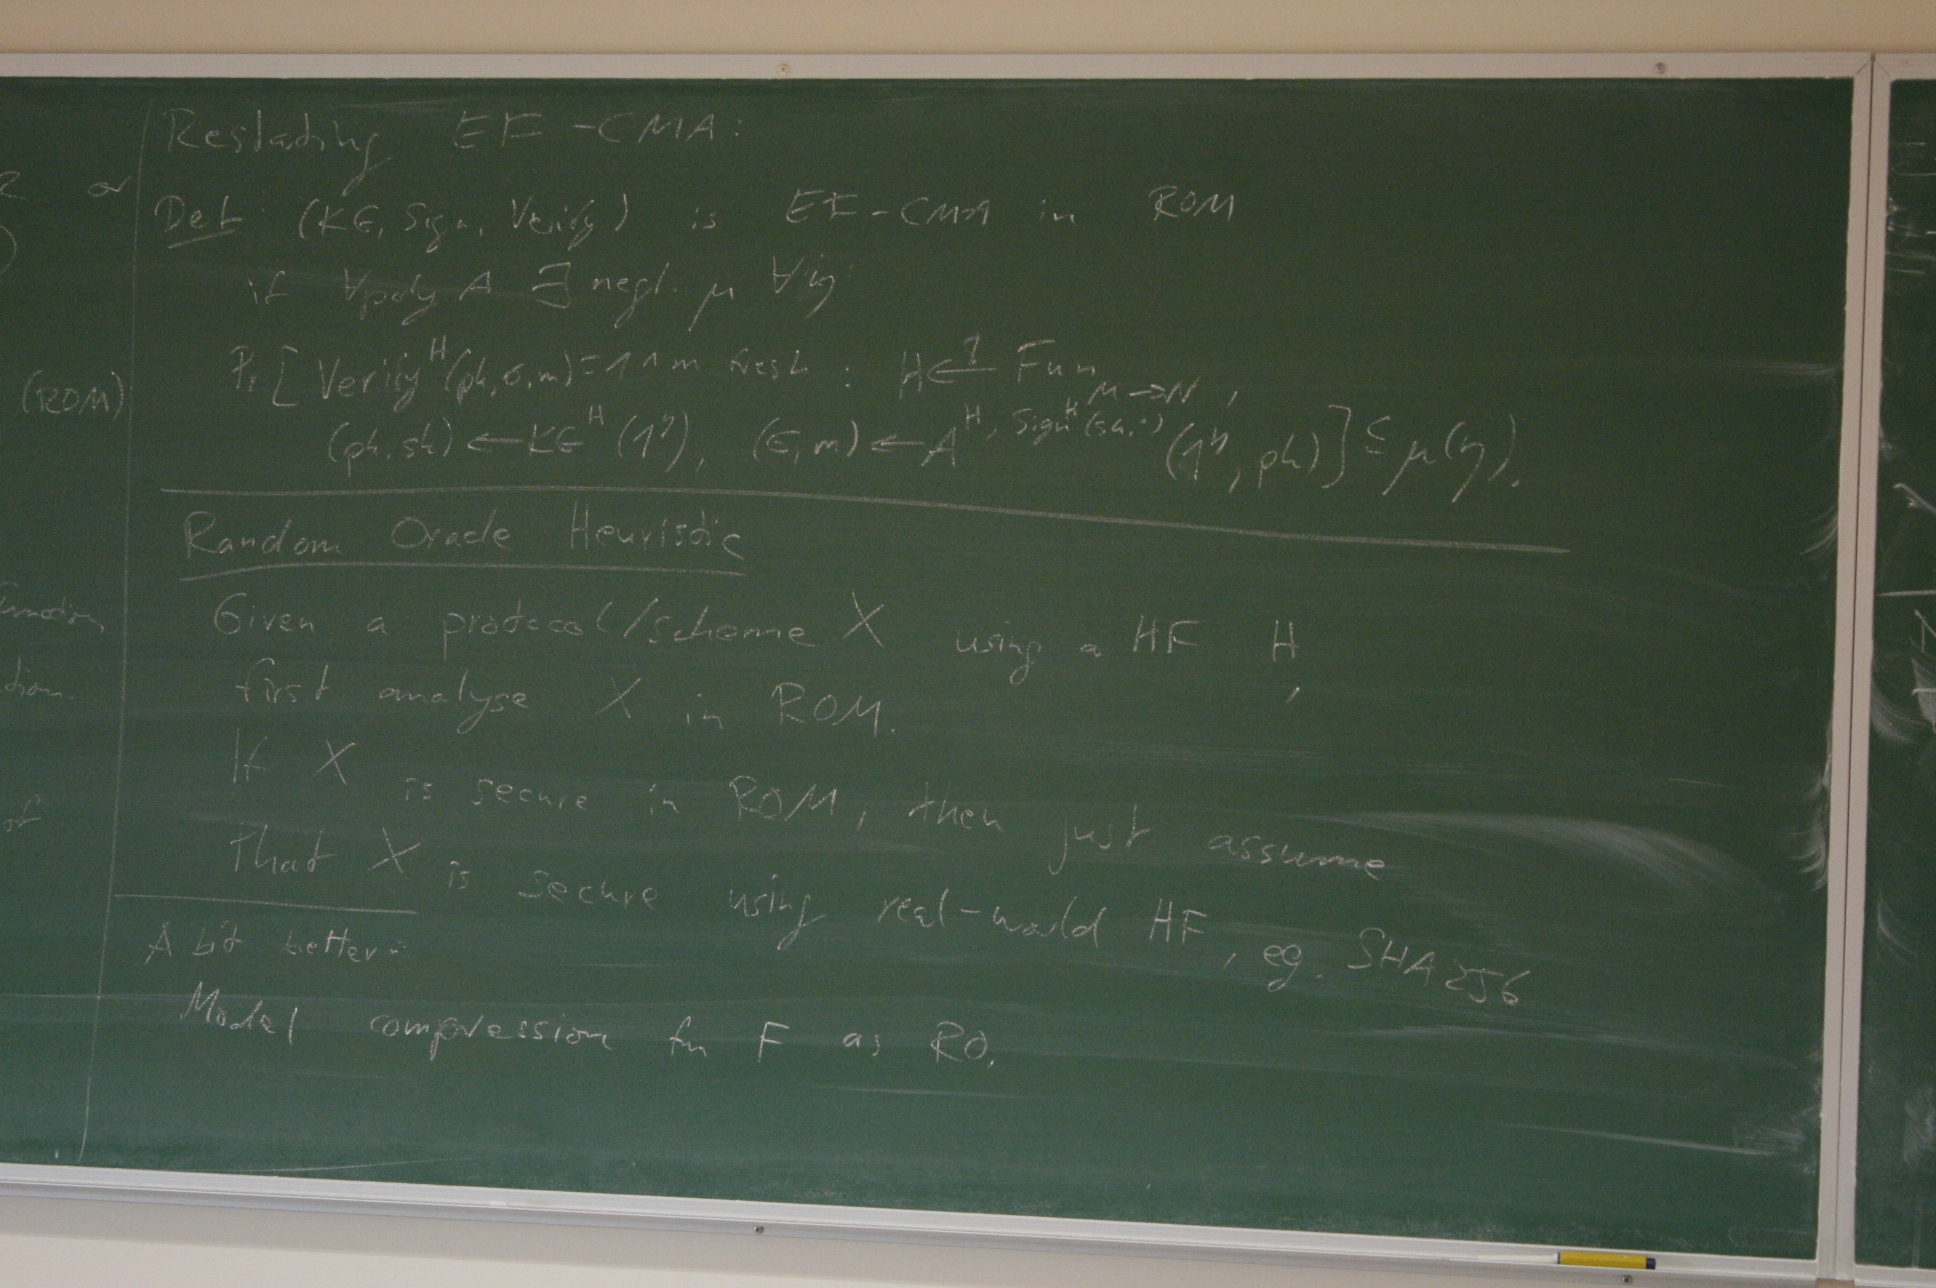 Restating EF-CMA:
Def: (KG, Sign, Verify) is EF-CMA in ROM
if ∀poly A ∃ negl. μ ∀η:
Pr[Verify^H(pk,σ,m)=1 ∧ m fresh : H ←$ Fun_{M→N},
(pk,sk) ← KG^H(1^η), (σ,m) ← A^{H, Sign^H(sk,·)}(1^η, pk)] ≤ μ(η).
Random Oracle Heuristic
Given a protocol/scheme X using a HF H,
first analyse X in ROM.
If X is secure in ROM, then just assume
that X is secure using real-world HF, eg. SHA256
A bit better:
Model compression fn F as RO.
or
(ROM)
function,
of